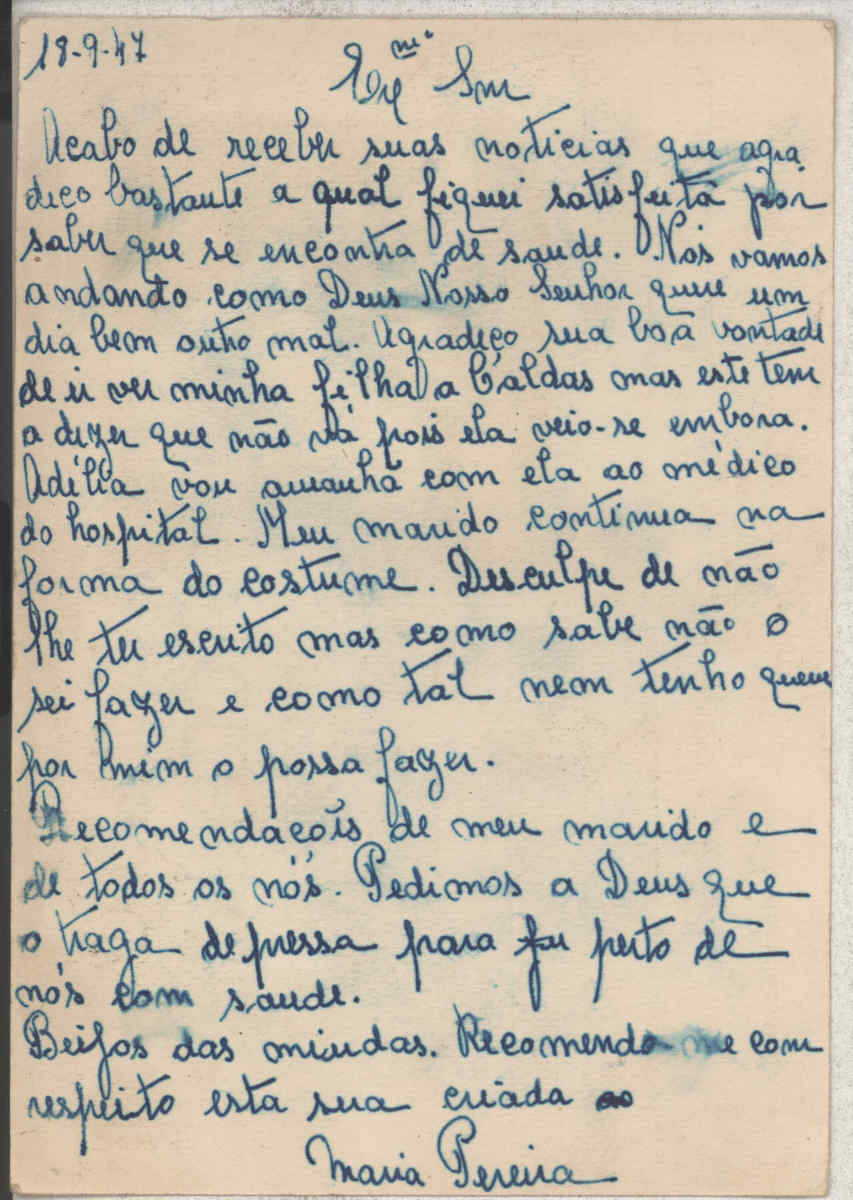 18-9-47
Exmº Snr
Acabo de receber suas noticias que agra
deço bastante a qual fiquei satisfeita por
saber que se encontra de saude. Nós vamos
andando como Deus Nosso Senhor quere um
dia bem outro mal. Agradeço sua boa vontade
de ir ver minha filha a Caldas mas este tem
a dizer que não vá pois ela veio-se embora.
Adélia vou amanhã com ela ao médico
do hospital. Meu marido continua na
forma do costume. Desculpe de não
lhe ter escrito mas como sabe não o
sei fazer e como tal nem tenho quem
por mim o possa fazer.
Recomendacois de meu marido e
de todos os nós. Pedimos a Deus que
o traga depressa para perto de
nós com saude.
Beijos das miudas. Recomendo me com
respeito esta sua criada
Maria Pereira